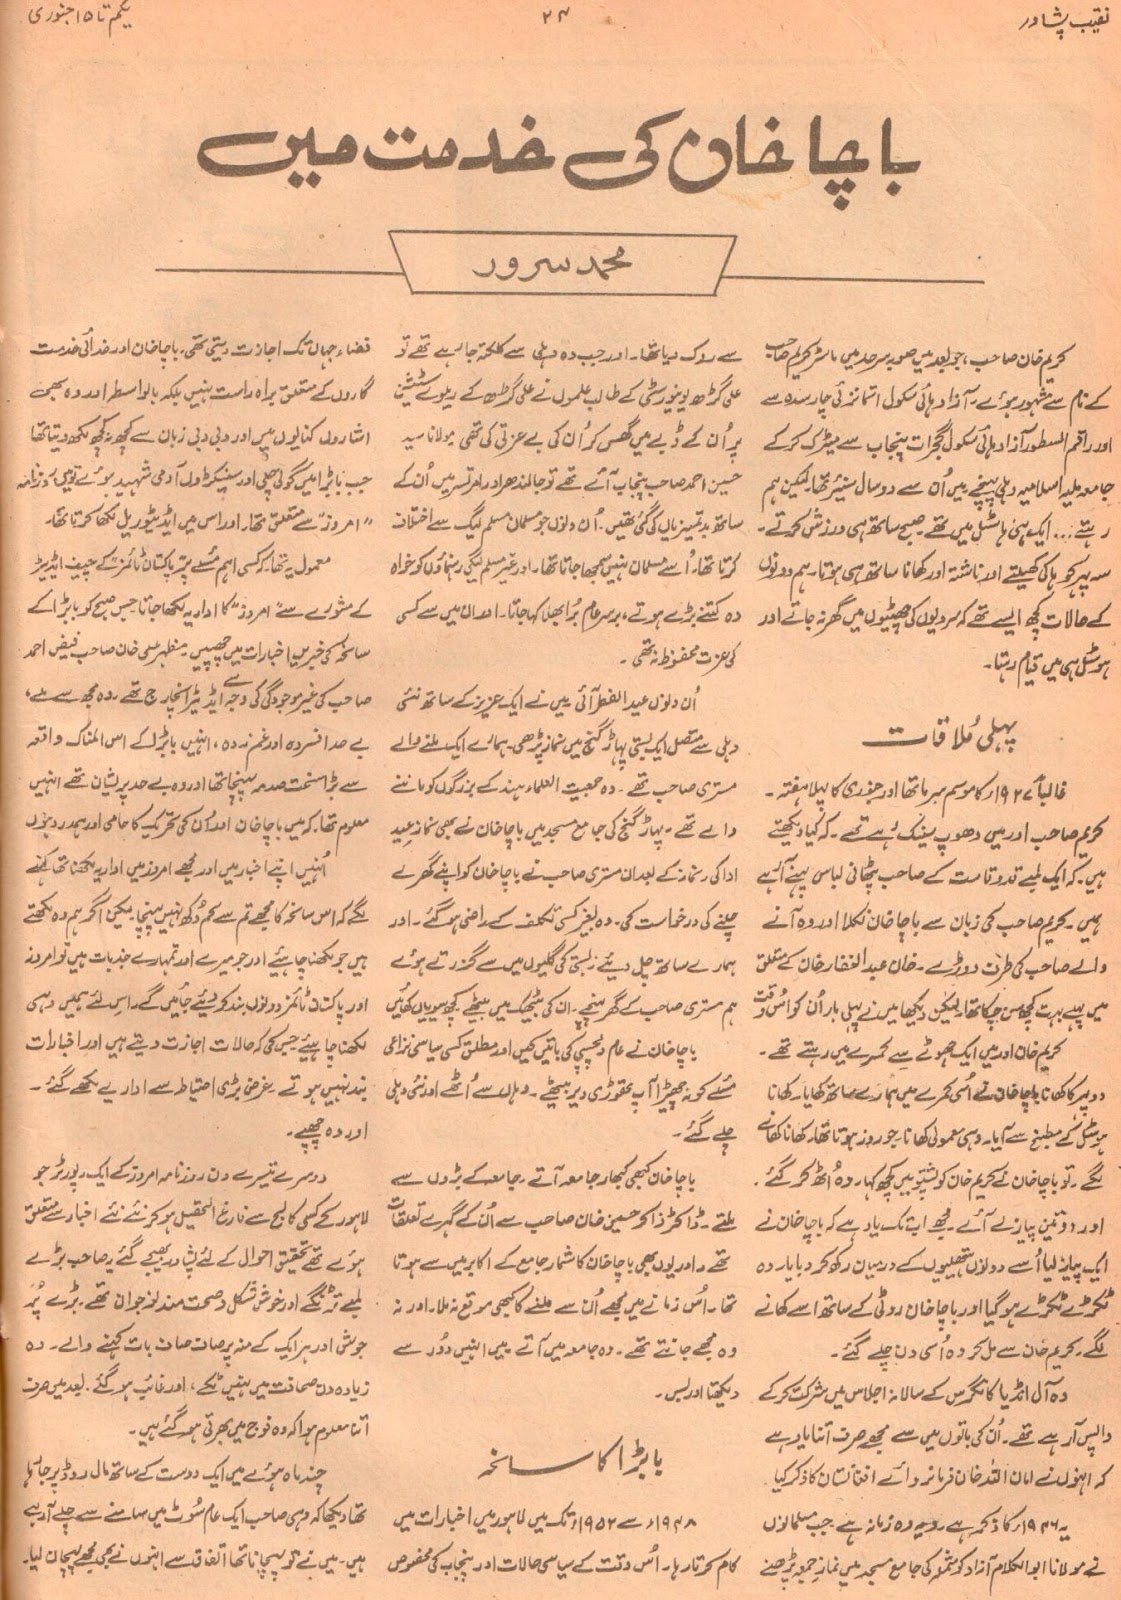 نقیب پشاور
۲۴
یکم تا ۱۵ جنوری
باچا خان کی خدمت میں
محمد سرور
کریم خان صاحب، جو بعد میں صوبہ سرحد میں ماسٹر کریم صاحب
کے نام سے مشہور ہوئے۔ آزاد ہائی سکول اتمانزئی چارسدہ سے
اور راقم السطور آزاد ہائی سکول گجرات پنجاب سے میٹرک کر کے
جامعہ ملیہ اسلامیہ دہلی پہنچے میں اُن سے دو سال سنیئر تھا۔ لیکن ہم
رہتے... ایک ہی ہاسٹل میں تھے۔ صبح ساتھ ہی ورزش کرتے۔
سہ پہر کو ہاکی کھیلتے اور ناشتہ اور کھانا ساتھ ہی ہوتا۔ ہم دونوں
کے حالات کچھ ایسے تھے کہ سردیوں کی چھٹیوں میں گھر نہ جاتے اور
ہوسٹل ہی میں قیام رہتا۔
پہلی مُلاقات
غالباً ۱۹۲۷ء کا موسم سرما تھا اور جنوری کا پہلا ہفتہ۔
کریم صاحب اور میں دھوپ سینک رہے تھے۔ کہ کیا دیکھتے
ہیں۔ کہ ایک لمبے قدوقامت کے صاحب پٹھانی لباس پہنے آ رہے
ہیں۔ کریم صاحب کی زبان سے باچا خان نکلا اور وہ آنے
والے صاحب کی طرف دوڑے۔ خان عبدالغفار خان کے متعلق
میں پہلے بہت کچھ سن چکا تھا لیکن دیکھا میں نے پہلی بار اُن کو اُس وقت
کریم خان اور میں ایک چھوٹے سے کمرے میں رہتے تھے۔
دوپہر کا کھانا باچا خان نے اُسی کمرے میں ہمارے ساتھ کھایا۔ کھانا
ہوسٹل کے مطبخ سے آیا۔ وہی معمولی کھانا۔ جو روز ہوتا تھا۔ کھانا کھانے
لگے۔ تو باچا خان نے کریم خان کو پشتو میں کچھ کہا۔ وہ اُٹھ کر گئے۔
اور دو تین پیاز لے آئے۔ مجھے اب تک یاد ہے کہ باچا خان نے
ایک پیاز لیا اُسے دونوں ہتھیلیوں کے درمیان رکھ کر دبایا۔ وہ
ٹکڑے ٹکڑے ہو گیا اور باچا خان روٹی کے ساتھ اسے کھانے
لگے۔ کریم خان سے مل کر وہ اُسی دن چلے گئے۔
وہ آل انڈیا کانگرس کے سالانہ اجلاس میں شرکت کر کے
واپس آ رہے تھے۔ اُن کی باتوں میں سے مجھے صرف اتنا یاد ہے
کہ انہوں نے امان اللہ خان فرمانروائے افغانستان کا ذکر کیا۔
یہ ۱۹۴۶ء کا ذکر ہے۔ یہ وہ زمانہ ہے۔ جب مسلمانوں
نے مولانا ابوالکلام آزاد کو شملہ کی جامع مسجد میں نماز جمعہ پڑھنے
سے روک دیا تھا۔ اور جب وہ دہلی سے کلکتہ جا رہے تھے تو
علی گڑھ یونیورسٹی کے طالب علموں نے علی گڑھ کے ریلوے سٹیشن
پر اُن کے ڈبے میں گھس کر اُن کی بے عزتی کی تھی مولانا سید
حسین احمد صاحب پنجاب آئے تھے تو جالندھر اور امرتسر میں اُن کے
ساتھ بدتمیزیاں کی گئی تھیں۔ اُن دنوں جو مسلمان مسلم لیگ سے اختلاف
کرتا تھا۔ اُسے مسلمان نہیں سمجھا جاتا تھا۔ اور غیر مسلم لیگی رہنماؤں کو خواہ
وہ کتنے بڑے ہوتے، برسرعام بُرا بھلا کہا جاتا۔ اور ان میں سے کسی
کی عزت محفوظ نہ تھی۔
اُن دنوں عید الفطر آئی۔ میں نے ایک عزیز کے ساتھ نئی
دہلی سے متصل ایک بستی پہاڑ گنج میں نماز پڑھی۔ ہمارے ایک ملنے والے
مستری صاحب تھے۔ وہ جمعیت العلماء ہند کے بزرگوں کو ماننے
والے تھے۔ پہاڑ گنج کی جامع مسجد میں باچا خان نے بھی نماز عید
ادا کی۔ نماز کے بعد ان مستری صاحب نے باچا خان کو اپنے گھر لے
چلنے کی درخواست کی۔ وہ بغیر کسی تکلف کے راضی ہو گئے۔ اور
ہمارے ساتھ چل دیئے۔ بستی کی گلیوں میں سے گزرتے ہوئے
ہم مستری صاحب کے گھر پہنچے۔ ان کی بیٹھک میں بیٹھے کچھ سویاں کھائیں
باچا خان نے عام دلچسپی کی باتیں کیں اور مطلق کسی سیاسی نزاعی
مسئلے کو نہ چھیڑا۔ آپ تھوڑی دیر بیٹھے۔ وہاں سے اُٹھے اور نئی دہلی
چلے گئے۔
باچا خان کبھی کبھار جامعہ آتے۔ جامعہ کے بڑوں سے
ملتے۔ ڈاکٹر ذاکر حسین خان صاحب سے اُن کے گہرے تعلقات
تھے۔ اور یوں بھی باچا خان کا شمار جامع کے اکابر میں سے ہوتا
تھا۔ اُس زمانے میں مجھے اُن سے ملنے کا کبھی موقع نہ ملا۔ اور نہ
وہ مجھے جانتے تھے۔ وہ جامعہ میں آتے۔ میں انہیں دُور سے
دیکھتا اور بس۔
بابڑا کا سانحہ
۱۹۴۸ء سے ۱۹۵۲ء تک میں لاہور میں اخبارات میں
کام کرتا رہا۔ اُس وقت کے سیاسی حالات اور پنجاب کی مخصوص
فضاء جہاں تک اجازت دیتی تھی۔ باچا خان اور خدائی خدمت
گاروں کے متعلق براہ راست نہیں بلکہ بالواسطہ اور وہ بھی
اشاروں کنایوں میں اور دبی دبی زبان سے کچھ نہ کچھ لکھ دیتا تھا
جب بابڑا میں گولی چلی اور سینکڑوں آدمی شہید ہوئے تو میں روزنامہ
"امروز" سے متعلق تھا۔ اور اس میں ایڈیٹوریل لکھا کرتا تھا۔
معمول یہ تھا۔ کہ کسی اہم مسئلے پر "پاکستان ٹائمز" کے چیف ایڈیٹر
کے مشورے سے "امروز" کا اداریہ لکھا جاتا جس صبح کو بابڑا کے
سانحہ کی خبریں اخبارات میں چھپیں۔ مظہر علی خان صاحب فیض احمد
صاحب کی غیر موجودگی کی وجہ سے ایڈیٹر انچارج تھے۔ وہ مجھ سے ملے،
بے حد افسردہ اور غمزدہ، انہیں بابڑا کے اس المناک واقعہ
سے بڑا سخت صدمہ پہنچا تھا اور وہ بے حد پریشان تھے انہیں
معلوم تھا۔ کہ میں باچا خان اور اُن کی تحریک کا حامی اور ہمدرد ہوں
اُنہیں اپنے اخبار میں اور مجھے امروز میں اداریہ لکھنا تھا کہنے
لگے کہ اس سانحہ کا مجھے تم سے کم دُکھ نہیں پہنچا۔ لیکن اگر ہم وہ لکھتے
ہیں جو لکھنا چاہیئے اور جو میرے اور تمہارے جذبات ہیں تو امروز
اور پاکستان ٹائمز دونوں بند کر دیئے جائیں گے۔ اس لئے ہمیں وہی
لکھنا چاہیئے جس کی کہ حالات اجازت دیتے ہیں اور اخبارات
بند نہیں ہوتے۔ غرض بڑی احتیاط سے اداریے لکھے گئے۔
اور وہ چھپے۔
دوسرے تیسرے دن روزنامہ امروز کے ایک رپورٹر جو
لاہور کے کسی کالج سے فارغ التحصیل ہو کر نئے نئے اخبار سے متعلق
ہوئے تھے تحقیق احوال کے لئے پشاور بھیجے گئے یہ صاحب بڑے
لمبے تڑنگے اور خوش شکل و صحت مند نوجوان تھے۔ بڑے پُر
جوش اور ہر ایک کے منہ پر صاف صاف بات کہنے والے۔ وہ
زیادہ دن صحافت میں نہیں ٹکے، اور غائب ہو گئے۔ بعد میں صرف
اتنا معلوم ہوا کہ وہ فوج میں بھرتی ہو گئے ہیں۔
چند ماہ ہوئے میں ایک دوست کے ساتھ مال روڈ پر جا رہا
تھا دیکھا کہ وہی صاحب ایک عام سُوٹ میں سامنے سے چلے آ رہے
ہیں۔ میں نے تو پہچانا تھا اتفاق سے انہوں نے بھی مجھے پہچان لیا۔